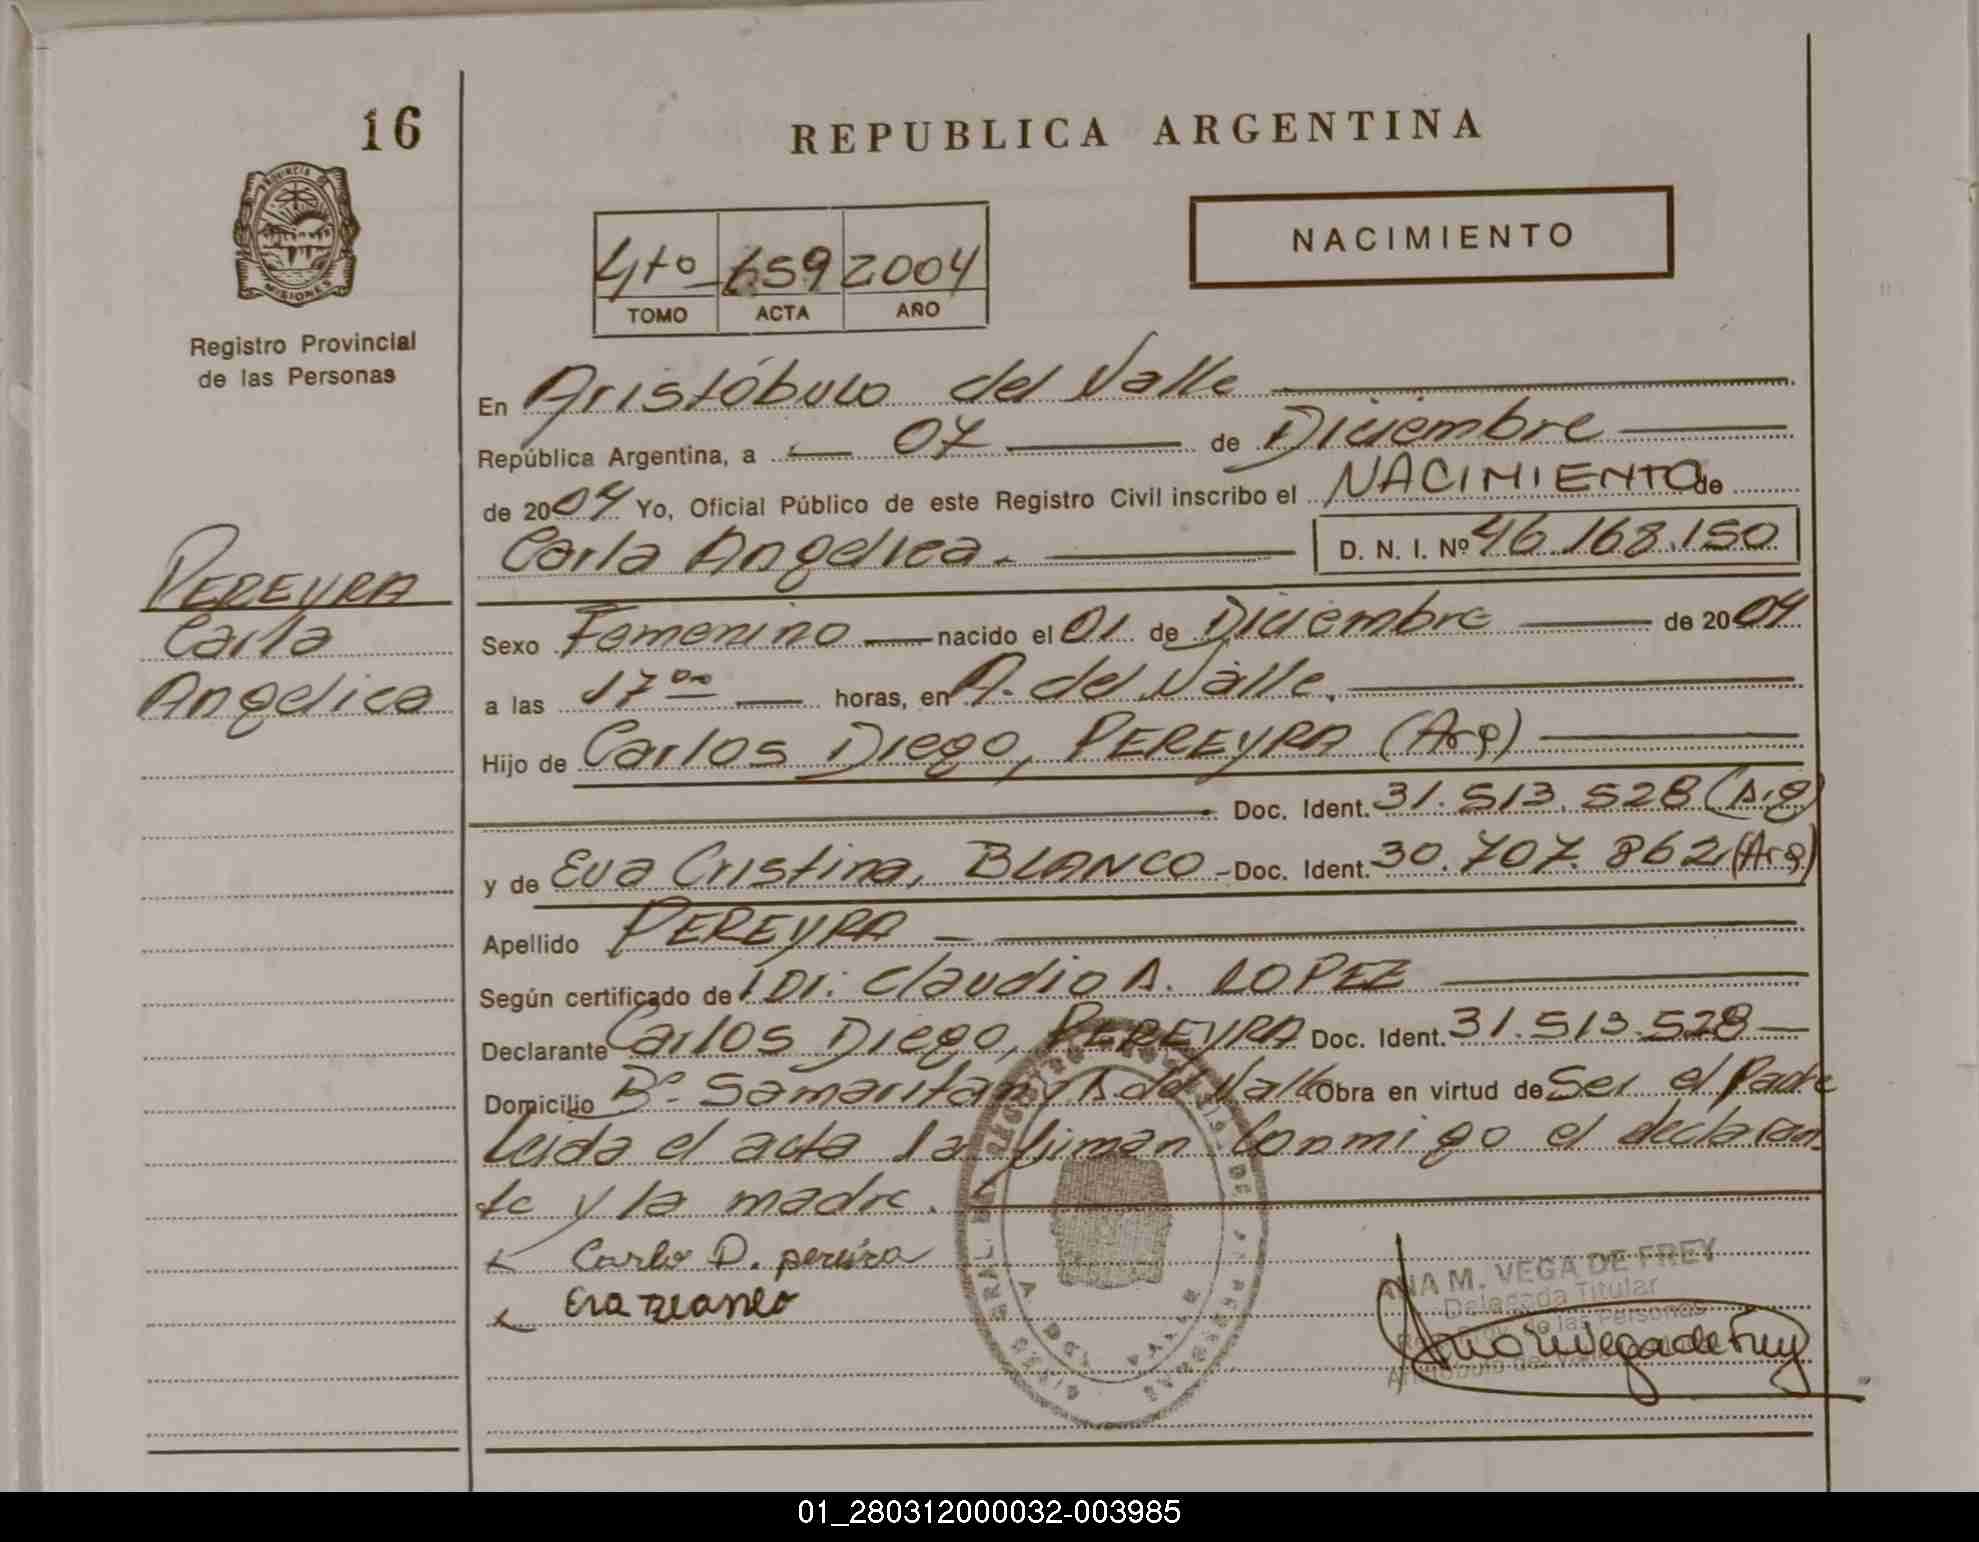 16
REPUBLICA ARGENTINA
NACIMIENTO
4to 659 2004
TOMO ACTA AÑO
PROVINCIA DE
MISIONES
Registro Provincial
de las Personas
En Aristóbulo del Valle
República Argentina, a 07 de Diciembre
de 2004 Yo, Oficial Público de este Registro Civil inscribo el NACIMIENTO de
Carla Angelica.- D. N. I. Nº 46.168.150
PEREYRA
Carla
Angelica
Sexo Femenino nacido el 01 de Diciembre de 2004
a las 17 00 horas, en A. del Valle.
Hijo de Carlos Diego, PEREYRA (Arg)
Doc. Ident. 31.513.528 (Arg)
y de Eva Cristina, BLANCO - Doc. Ident. 30.707.862 (Arg)
Apellido PEREYRA
Según certificado de Dr. Claudio A. LOPEZ
Declarante Carlos Diego, PEREYRA Doc. Ident. 31.513.528
Domicilio Bº Samaritano A. del Valle Obra en virtud de Ser el Padre
Leida el acta la firman Conmigo el declaran
te y la madre.
Carlo D. pereira
Eva
ANA M. VEGA DE FREY
Delegada Titular
Reg. Prov. de las Personas
Aristóbulo del Valle
01_280312000032-003985